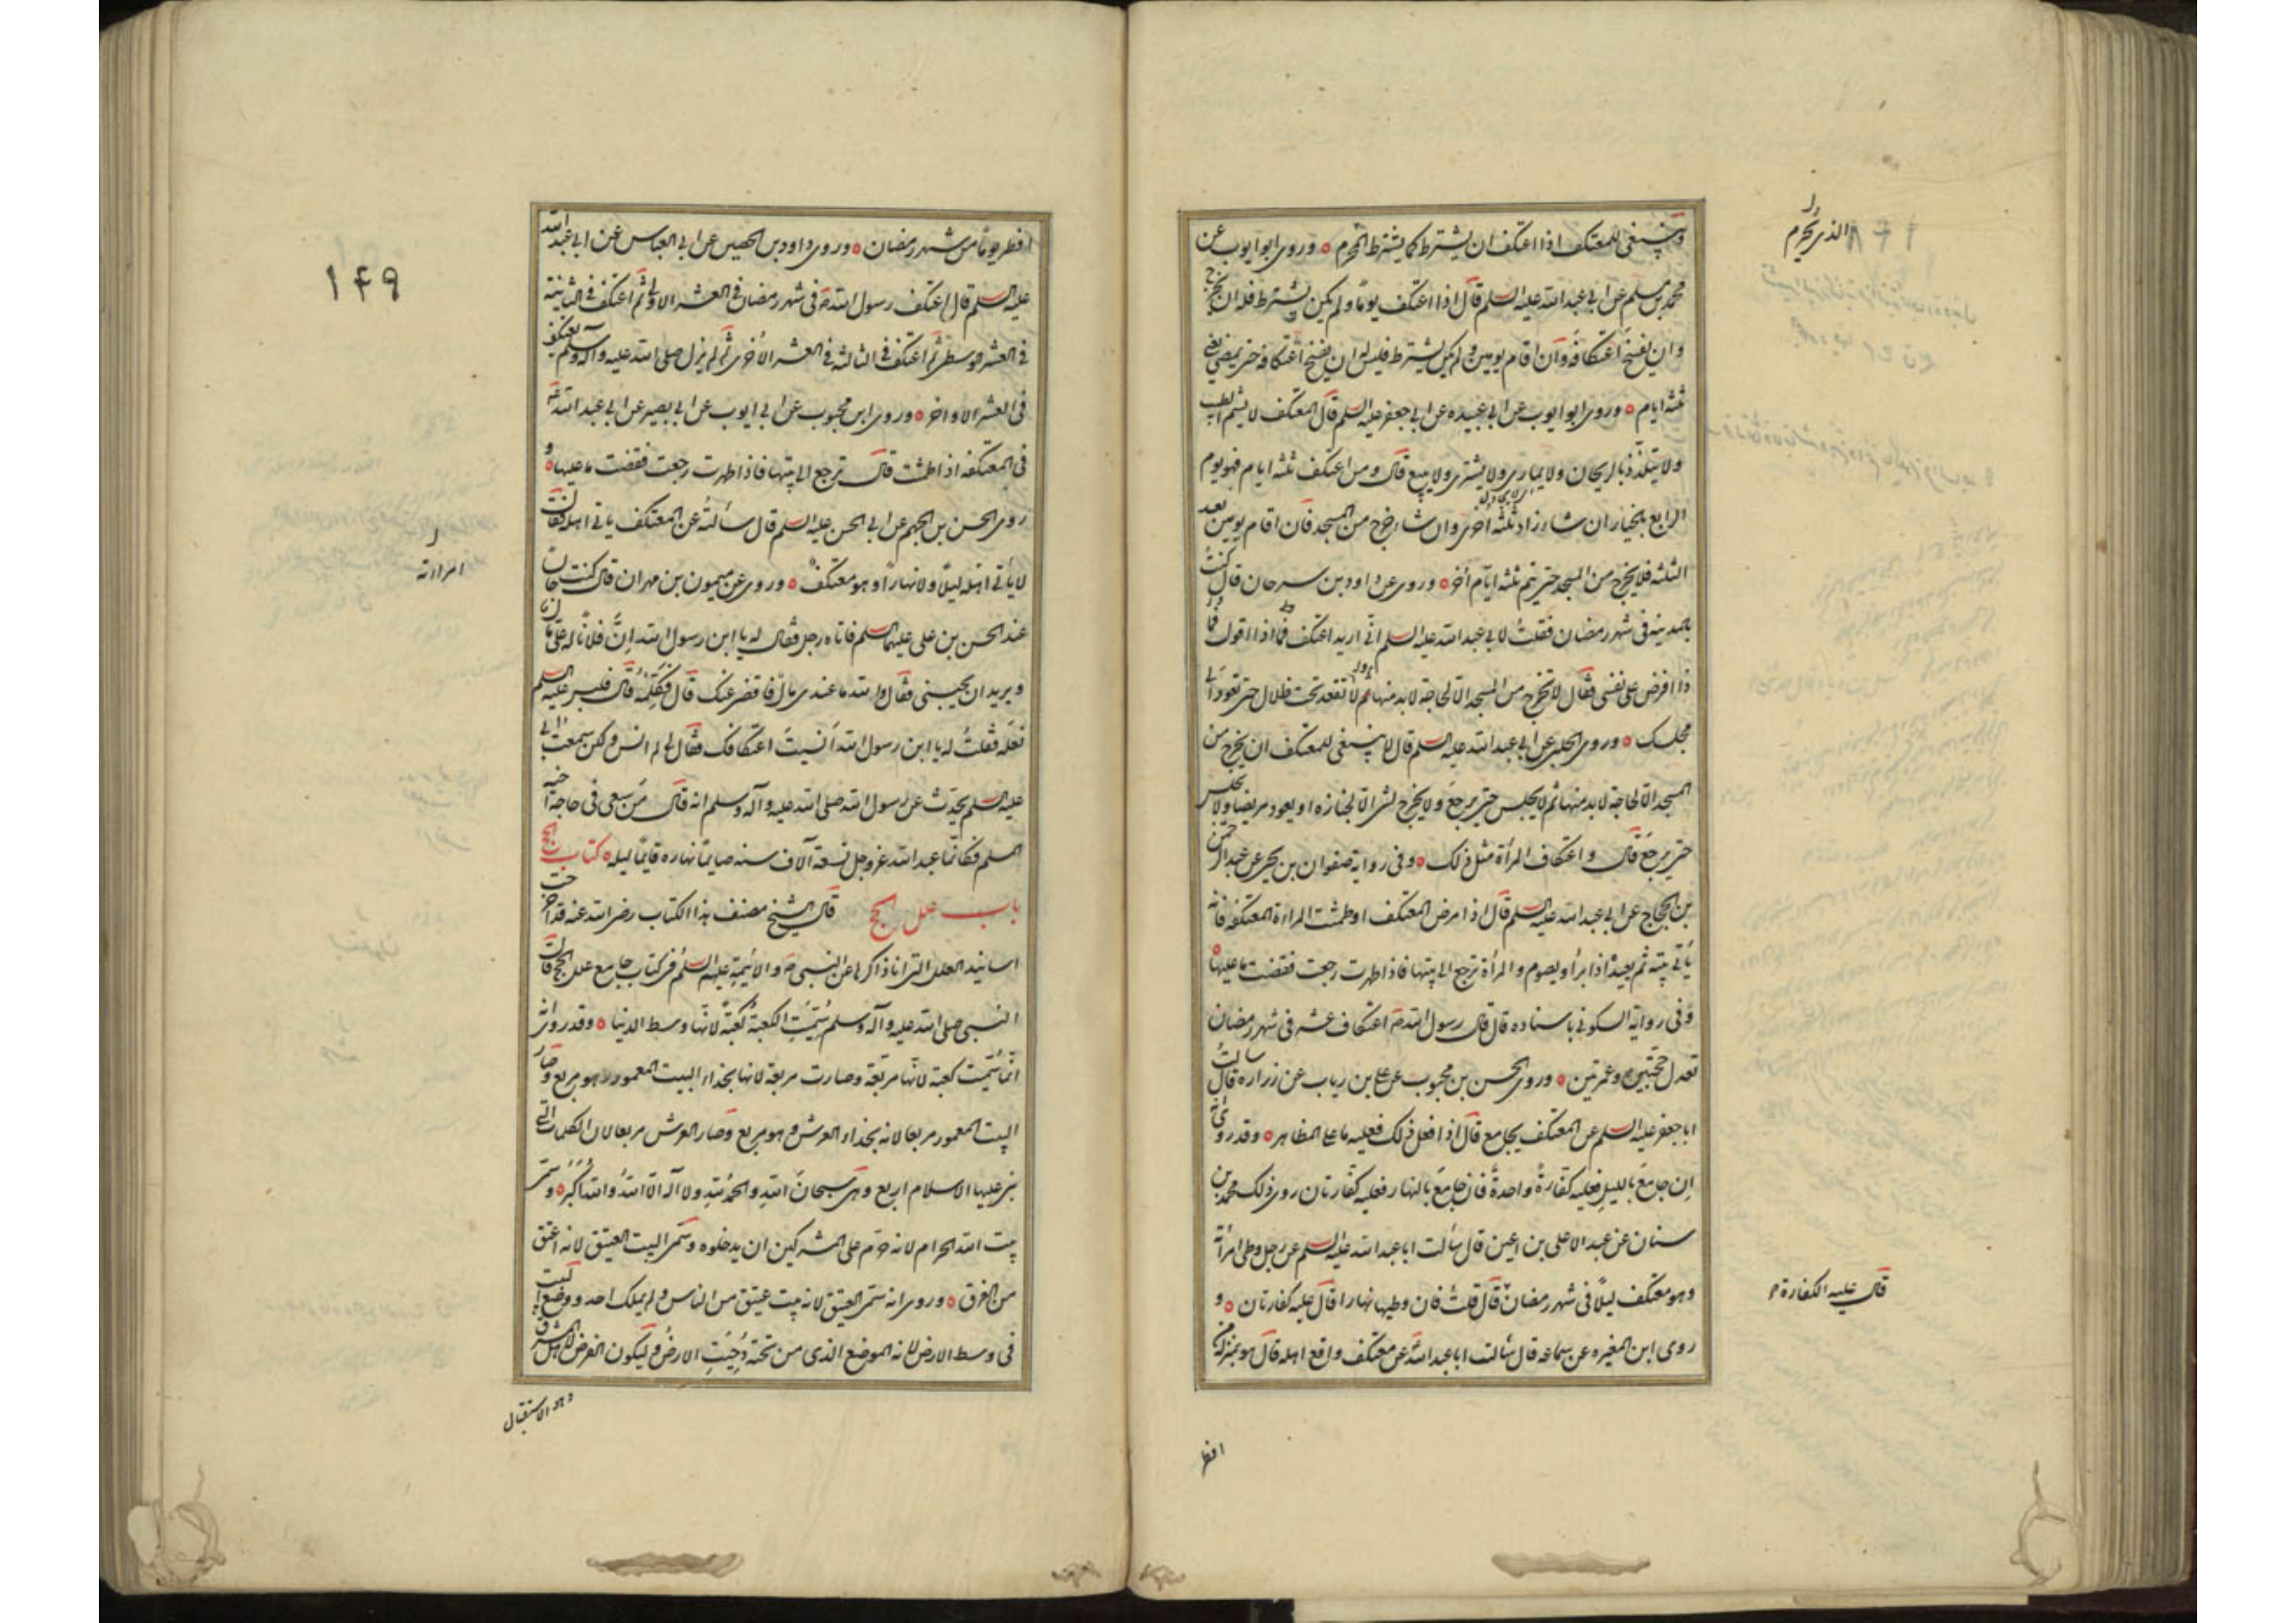 وينبغى للمعتكف اذا اعتكف ان يشترط كما يشترط المحرم وروى ابو ايوب عن
محمد بن مسلم عن ابى عبد الله عليه السلم قال اذا اعتكف يوما ولم يكن يشترط فله ان يخرج
وان يفسخ اعتكافه وان اقام يومين ولم يكن يشترط فليس له ان يفسخ اعتكافه حتى يمضى
ثلثه ايام وروى ابو ايوب عن ابى عبيده عن ابى جعفر عليه السلم قال المعتكف لا يشم الطيب
ولا يتلذذ بالريحان ولا يمارى ولا يشترى ولا يبيع قال ومن اعتكف ثلثه ايام فهو يوم
الرابع بالخيار ان شاء زاد ثلثه اخرى وان شاء خرج من المسجد فان اقام يومين بعد
الثلثه فلا يخرج من المسجد حتى يتم ثلثه ايام اخر وروى عن داود بن سرحان قال كنت
بالمدينه فى شهر رمضان فقلت لابى عبد الله عليه السلم انى اريد اعتكف فماذا اقول
ذا افرض على نفسى فقال لا تخرج من المسجد الا لحاجة لا بد منها ثم لا تقعد تحت ظلال حتى تعود الى
مجلسك وروى الحلبى عن ابى عبد الله عليه السلم قال لا ينبغى للمعتكف ان يخرج من
المسجد الا لحاجة لا بد منها ثم لا يجلس حتى يرجع ولا يخرج لشى الا لجنازه او يعود مريضا ولا يجلس
حتى يرجع قال واعتكاف المرأة مثل ذلك وفى رواية صفوان بن يحيى عن عبد الرحمن
بن الحجاج عن ابى عبد الله عليه السلم قال اذا مرض المعتكف او طمثت المراءة المعتكفه فانه
يأتى بيته ثم يعيد اذا برأ ويصوم والمرأة ترجع الى بيتها فاذا طهرت رجعت فقضت ما عليها
وفى رواية السكونى باسناده قال قال رسول الله ص اعتكاف عشر فى شهر رمضان
تعدل حجتين وعمرتين وروى الحسن بن محبوب عن على بن رياب عن زراره قال سالت
ابا جعفر عليه السلم عن المعتكف يجامع قال اذا فعل ذلك فعليه ما على المظاهر وقد روى انه
ان جامع بالليل فعليه كفارة واحدة فان جامع بالنهار فعليه كفارتان روى ذلك محمد بن
سنان عن عبد الاعلى بن اعين قال سألت ابا عبد الله عليه السلم عن رجل وطى امرأته
وهو معتكف ليلا فى شهر رمضان قال قلت فان وطيها نهارا قال عليه كفارتان و
روى ابن المغيره عن سماعه قال سالت ابا عبد الله عن معتكف واقع اهله قال هو بمنزلة من
افطر
الذى يحرم
قال عليه الكفارة
١۴٩
افطر يوما من شهر رمضان وروى داود بن الحصين عن ابى العباس عن ابى عبد الله
عليه السلم قال اعتكف رسول الله ص فى شهر رمضان فى العشر الاولى ثم اعتكف فى الثانية
فى العشر الوسطى ثم اعتكف فى الثالثه فى العشر الاخرى ثم لم يزل صلى الله عليه وآله وسلم يعتكف
فى العشر الاواخر وروى ابن محبوب عن ابى ايوب عن ابى بصير عن ابى عبد الله ع
فى المعتكفه اذا طمثت قال ترجع الى بيتها فاذا طهرت رجعت فقضت ما عليها و
روى الحسن بن الجهم عن ابى الحسن عليه السلم قال سألته عن المعتكف ياتى اهله فقال
لا يأتى امرأته ليلا ولا نهارا وهو معتكف وروى عن ميمون بن مهران قال كنت جالسا
عند الحسن بن على عليهما السلم فاتاه رجل فقال له يا ابن رسول الله ان فلانا له على مال
ويريد ان يحبسنى فقال والله ما عندى مال فاقضى عنك قال فكلمه قال فلبس عليه السلم
نعله فقلت له يا ابن رسول الله أنسيت اعتكافك فقال لى لم انس ولكن سمعت ابى
عليه السلم يحدث عن رسول الله صلى الله عليه وآله وسلم انه قال من سعى فى حاجة اخيه
المسلم فكانما عبد الله عز وجل تسعة آلاف سنه صايما نهاره قايما ليله كتاب الحج
باب علل الحج قال الشيخ مصنف هذا الكتاب رضى الله عنه قد اخرجت
اسانيد العلل التى انا ذاكرها عن النبى ص والائمة عليهم السلم فى كتاب جامع علل الحج قال
النبى صلى الله عليه وآله وسلم سميت الكعبة كعبة لانها وسط الدنيا وقد روى انه
انما سميت كعبة لانها مربعة وصارت مربعة لانها بحذاء البيت المعمور وهو مربع وصار
البيت المعمور مربعا لانه بحذاء العرش وهو مربع وصار العرش مربعا لان الكلمات التى
بنى عليها الاسلام اربع وهى سبحان الله والحمد لله ولا اله الا الله والله اكبر وسمى
بيت الله الحرام لانه حرم على المشركين ان يدخلوه وسمى البيت العتيق لانه اعتق
من الغرق وروى انه سمى العتيق لانه بيت عتيق من الناس ولم يملكه احد ووضع البيت
فى وسط الارض لانه الموضع الذى من تحته دحيت الارض وليكون الفرض لاهل المشرق
امراءته